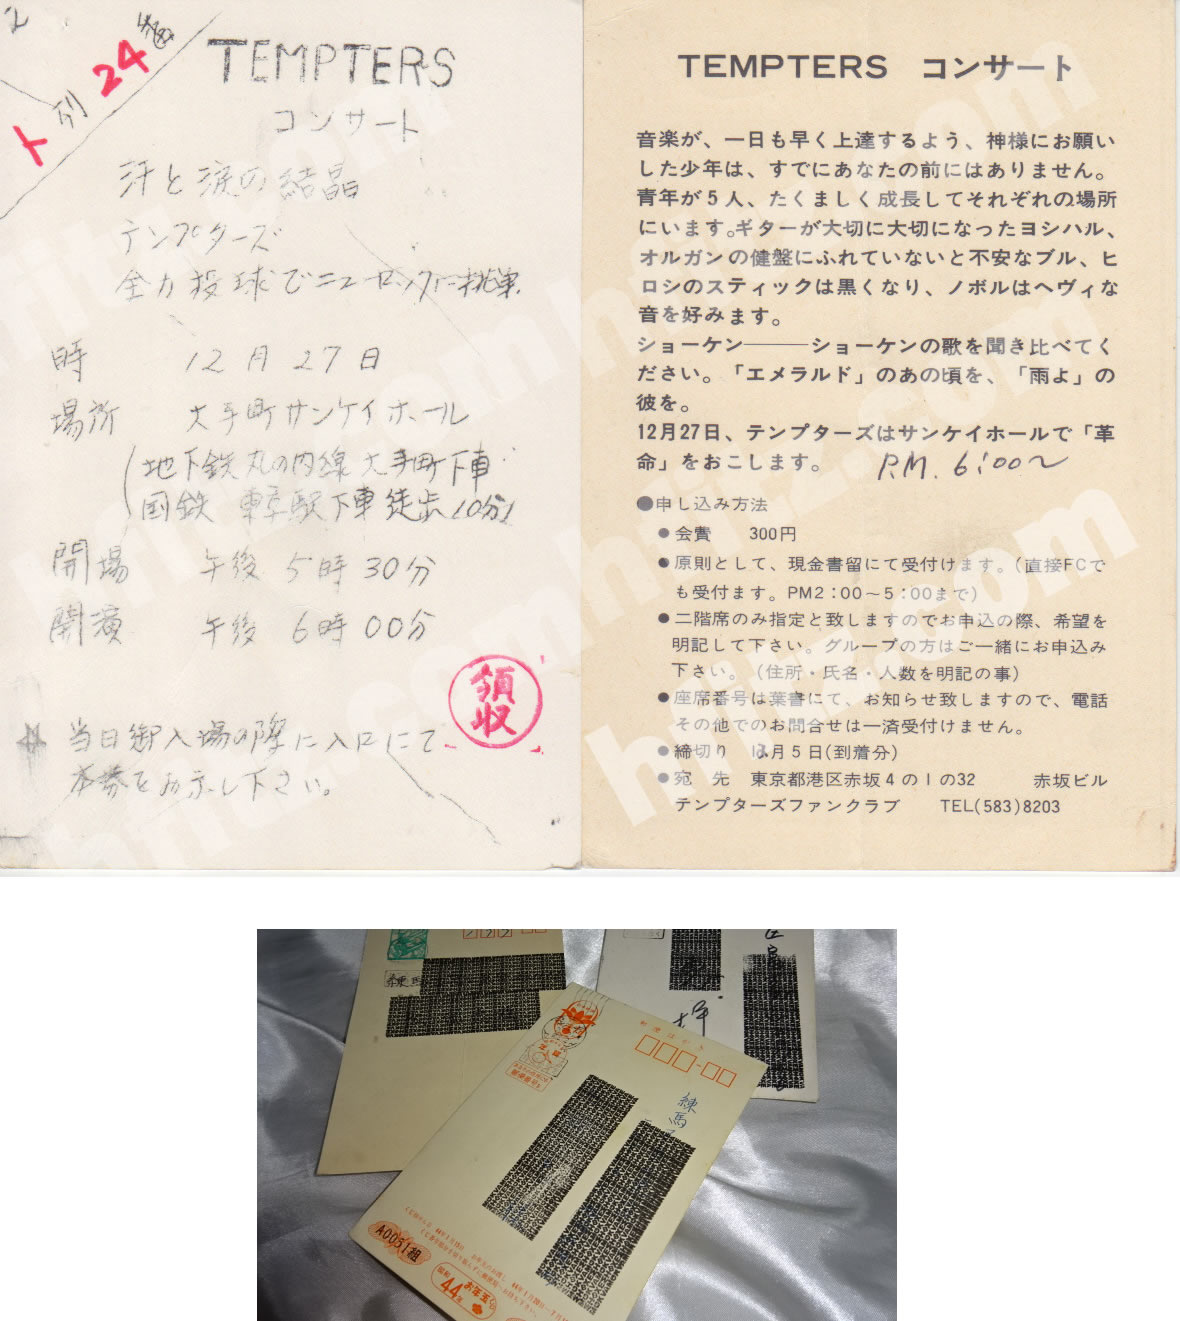 2
ト列 24番
TEMPTERS
コンサート
汗と涙の結晶
テンプターズ
全力投球でニューロックに挑戦
時 12月27日
場所 大手町サンケイホール
(地下鉄 丸の内線 大手町下車
国鉄 東京駅下車 徒歩10分)
開場 午後 5時30分
開演 午後 6時00分
領収
☆ 当日御入場の際に入口にて
本券をお示し下さい。
TEMPTERS コンサート
音楽が、一日も早く上達するよう、神様にお願い
した少年は、すでにあなたの前にはありません。
青年が5人、たくましく成長してそれぞれの場所
にいます。ギターが大切に大切になったヨシハル、
オルガンの健盤にふれていないと不安なブル、ヒ
ロシのスティックは黒くなり、ノボルはヘヴィな
音を好みます。
ショーケン———ショーケンの歌を聞き比べてく
ださい。「エメラルド」のあの頃を、「雨よ」の
彼を。
12月27日、テンプターズはサンケイホールで「革
命」をおこします。 P.M. 6:00〜
●申し込み方法
●会費 300円
●原則として、現金書留にて受付けます。(直接FCで
も受付ます。PM2:00〜5:00まで)
●二階席のみ指定と致しますのでお申込の際、希望を
明記して下さい。グループの方はご一緒にお申込み
下さい。(住所・氏名・人数を明記の事)
●座席番号は葉書にて、お知らせ致しますので、電話
その他でのお問合せは一済受付けません。
●締切り 12月5日(到着分)
●宛 先 東京都港区赤坂4の1の32 赤坂ビル
テンプターズファンクラブ TEL(583)8203
hfitz.com
郵便はがき
練馬
A0051組
昭和
44年
お年玉